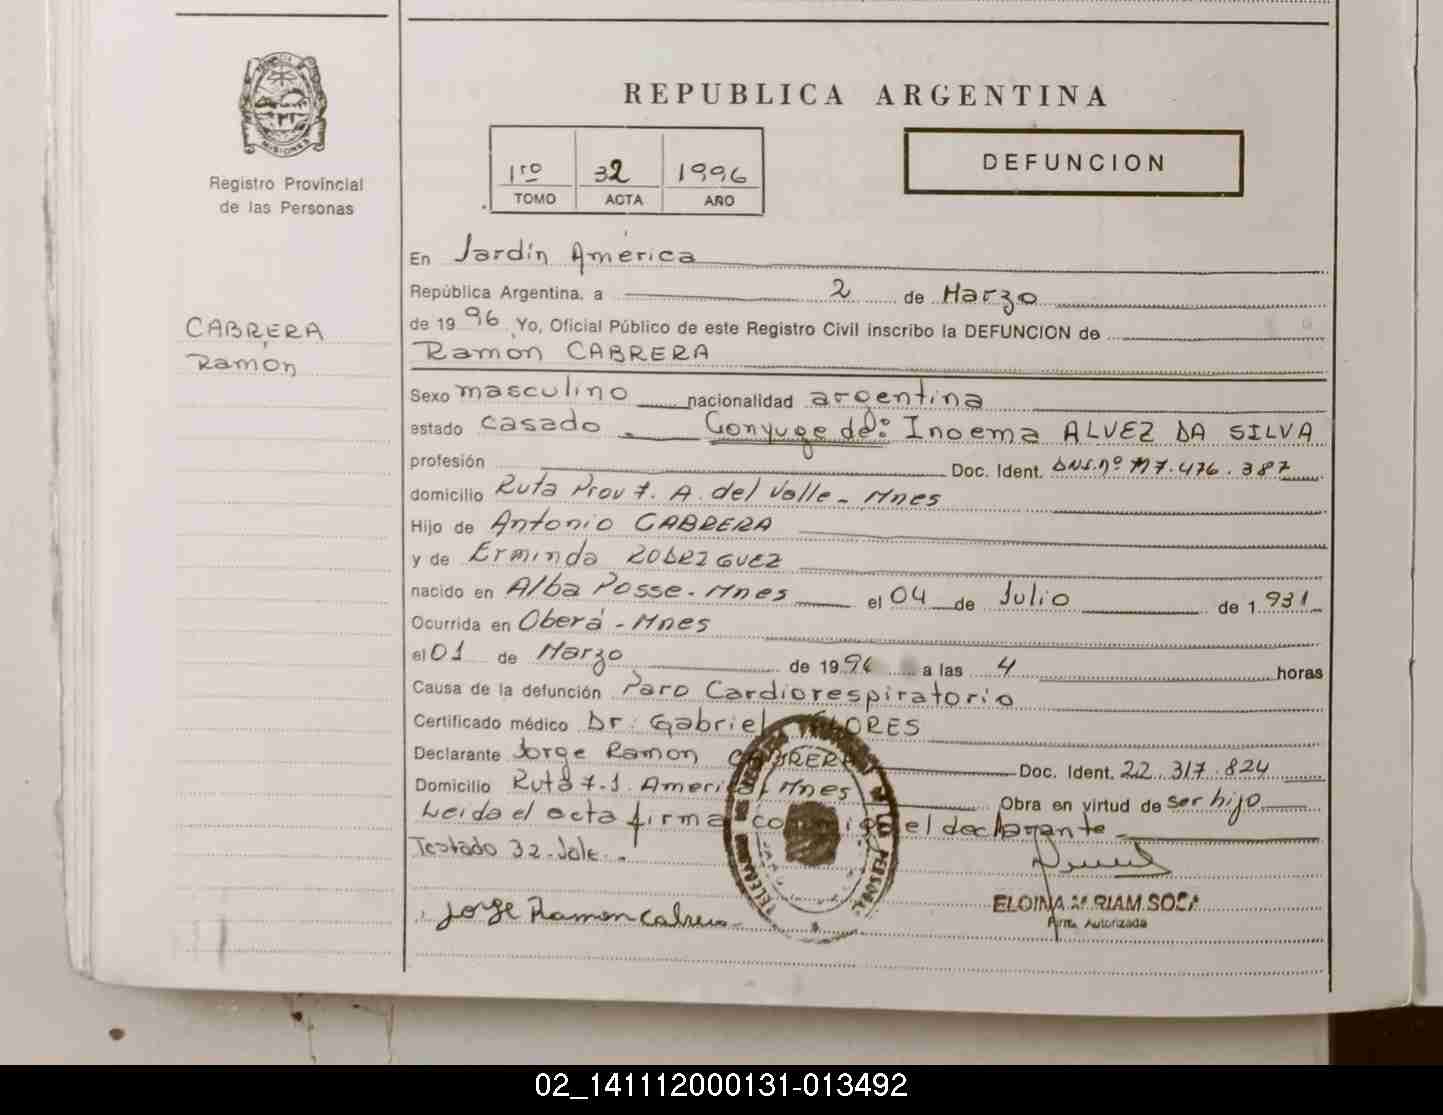 REPUBLICA ARGENTINA
MISIONES
Registro Provincial
de las Personas
1ro 32 1996
TOMO ACTA AÑO
DEFUNCION
CABRERA
Ramón
En Jardín América
República Argentina, a 2 de Marzo
de 1996 Yo, Oficial Público de este Registro Civil inscribo la DEFUNCION de
Ramón CABRERA
Sexo masculino nacionalidad argentina
estado casado Conyuge de: Inoema ALVEZ DA SILVA
profesión Doc. Ident. DNI. nº 7.476.387
domicilio Ruta Prov 7. A. del Valle - Mnes
Hijo de Antonio CABRERA
y de Erminda RODRIGUEZ
nacido en Alba Posse - Mnes el 04 de Julio de 1.931
Ocurrida en Oberá - Mnes
el 01 de Marzo de 1996 a las 4 horas
Causa de la defunción Paro Cardiorespiratorio
Certificado médico Dr. Gabriel FLORES
Declarante Jorge Ramon CABRERA Doc. Ident. 22.317.824
Domicilio Ruta 7. J. America, Mnes Obra en virtud de ser hijo
Leida el acta firma conmigo el declarante
Testado 32. Vale.
Jorge Ramon Cabrera
ELOINA MIRIAM SOSA
Firma Autorizada
02_141112000131-013492